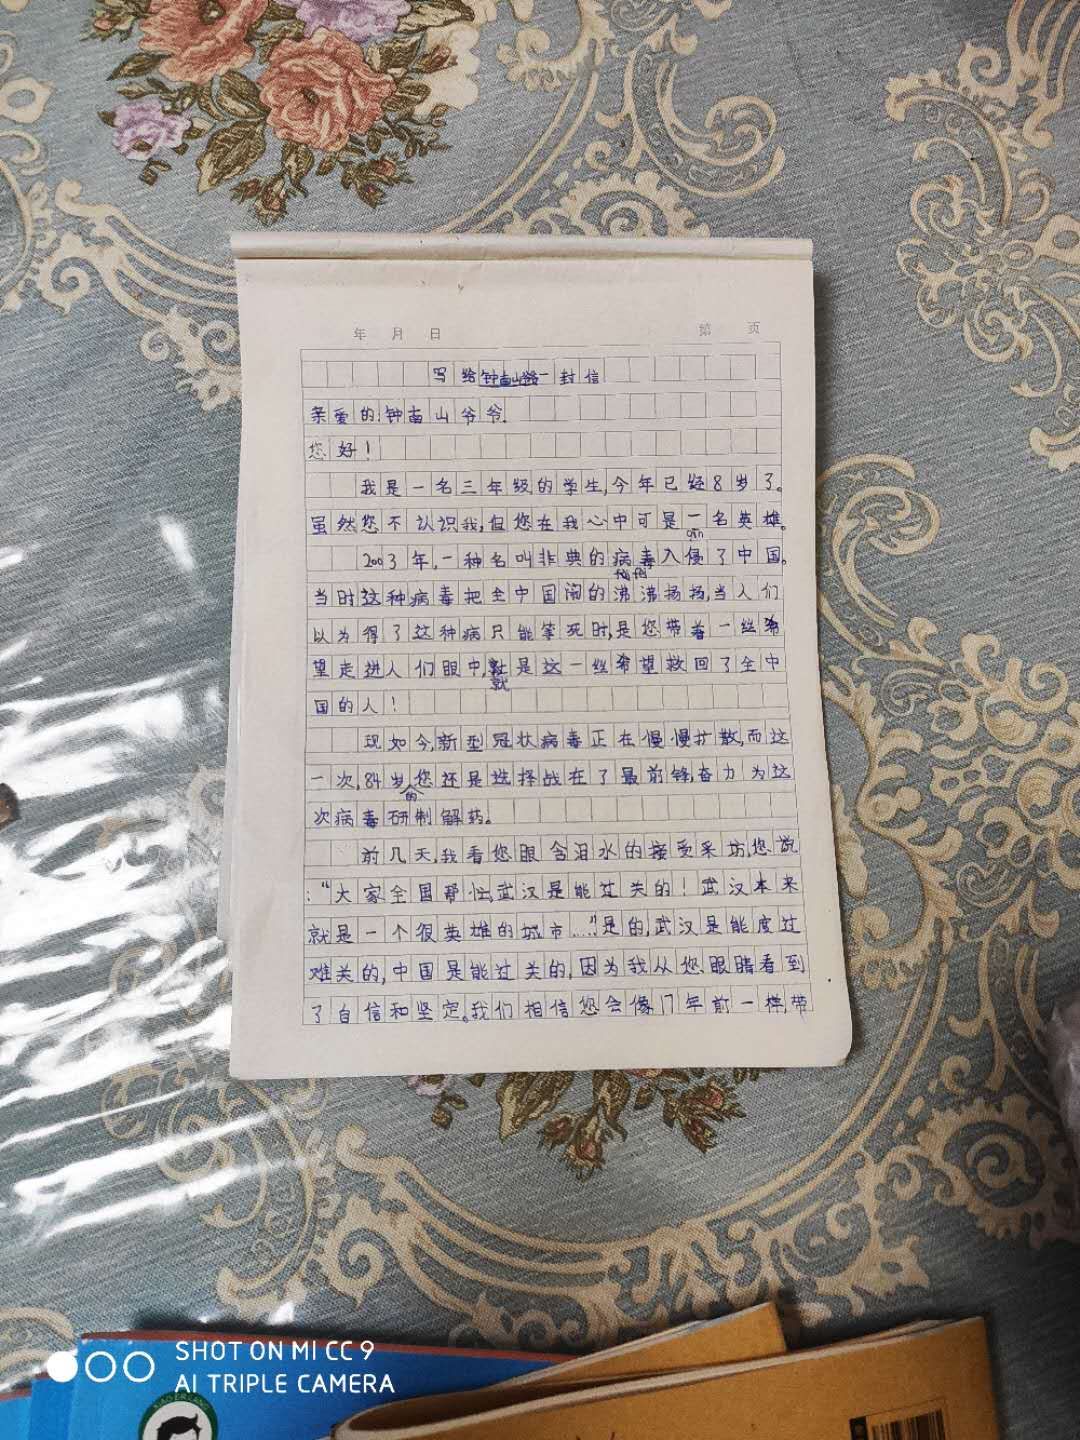 年 月 日 第 页
写给钟南山爷爷一封信
亲爱的钟南山爷爷.
您好！
我是一名三年级的学生,今年已经8岁了。
虽然您不认识我,但您在我心中可是一名英雄。
qīn
2003年,一种名叫非典的病毒入侵了中国。
当时这种病毒把全中国闹的沸沸扬扬,当人们
以为得了这种病只能等死时,是您带着一丝希
望走进人们眼中,就是这一丝希望救回了全中
国的人！
现如今,新型冠状病毒正在慢慢扩散,而这
一次,84岁的您还是选择战在了最前锋,奋力为这
次病毒研制解药。
前几天,我看您眼含泪水的接受采坊,您说
:“大家全国帮忙,武汉是能过关的！武汉本来
就是一个很英雄的城市……”是的,武汉是能度过
难关的,中国是能过关的,因为我从您眼睛看到
了自信和坚定。我们相信您会像17年前一样,带
SHOT ON MI CC 9
AI TRIPLE CAMERA